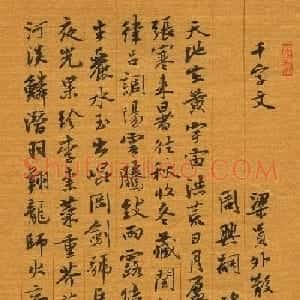 千字文
梁員外散
周興嗣
天地玄黃宇宙洪荒日月盈
張寒來暑往秋收冬藏閏
律呂調陽雲騰致雨露結
生麗水玉出崑岡劍號巨
夜光果珍李柰菜重芥
河淡鱗潛羽翔龍師火帝